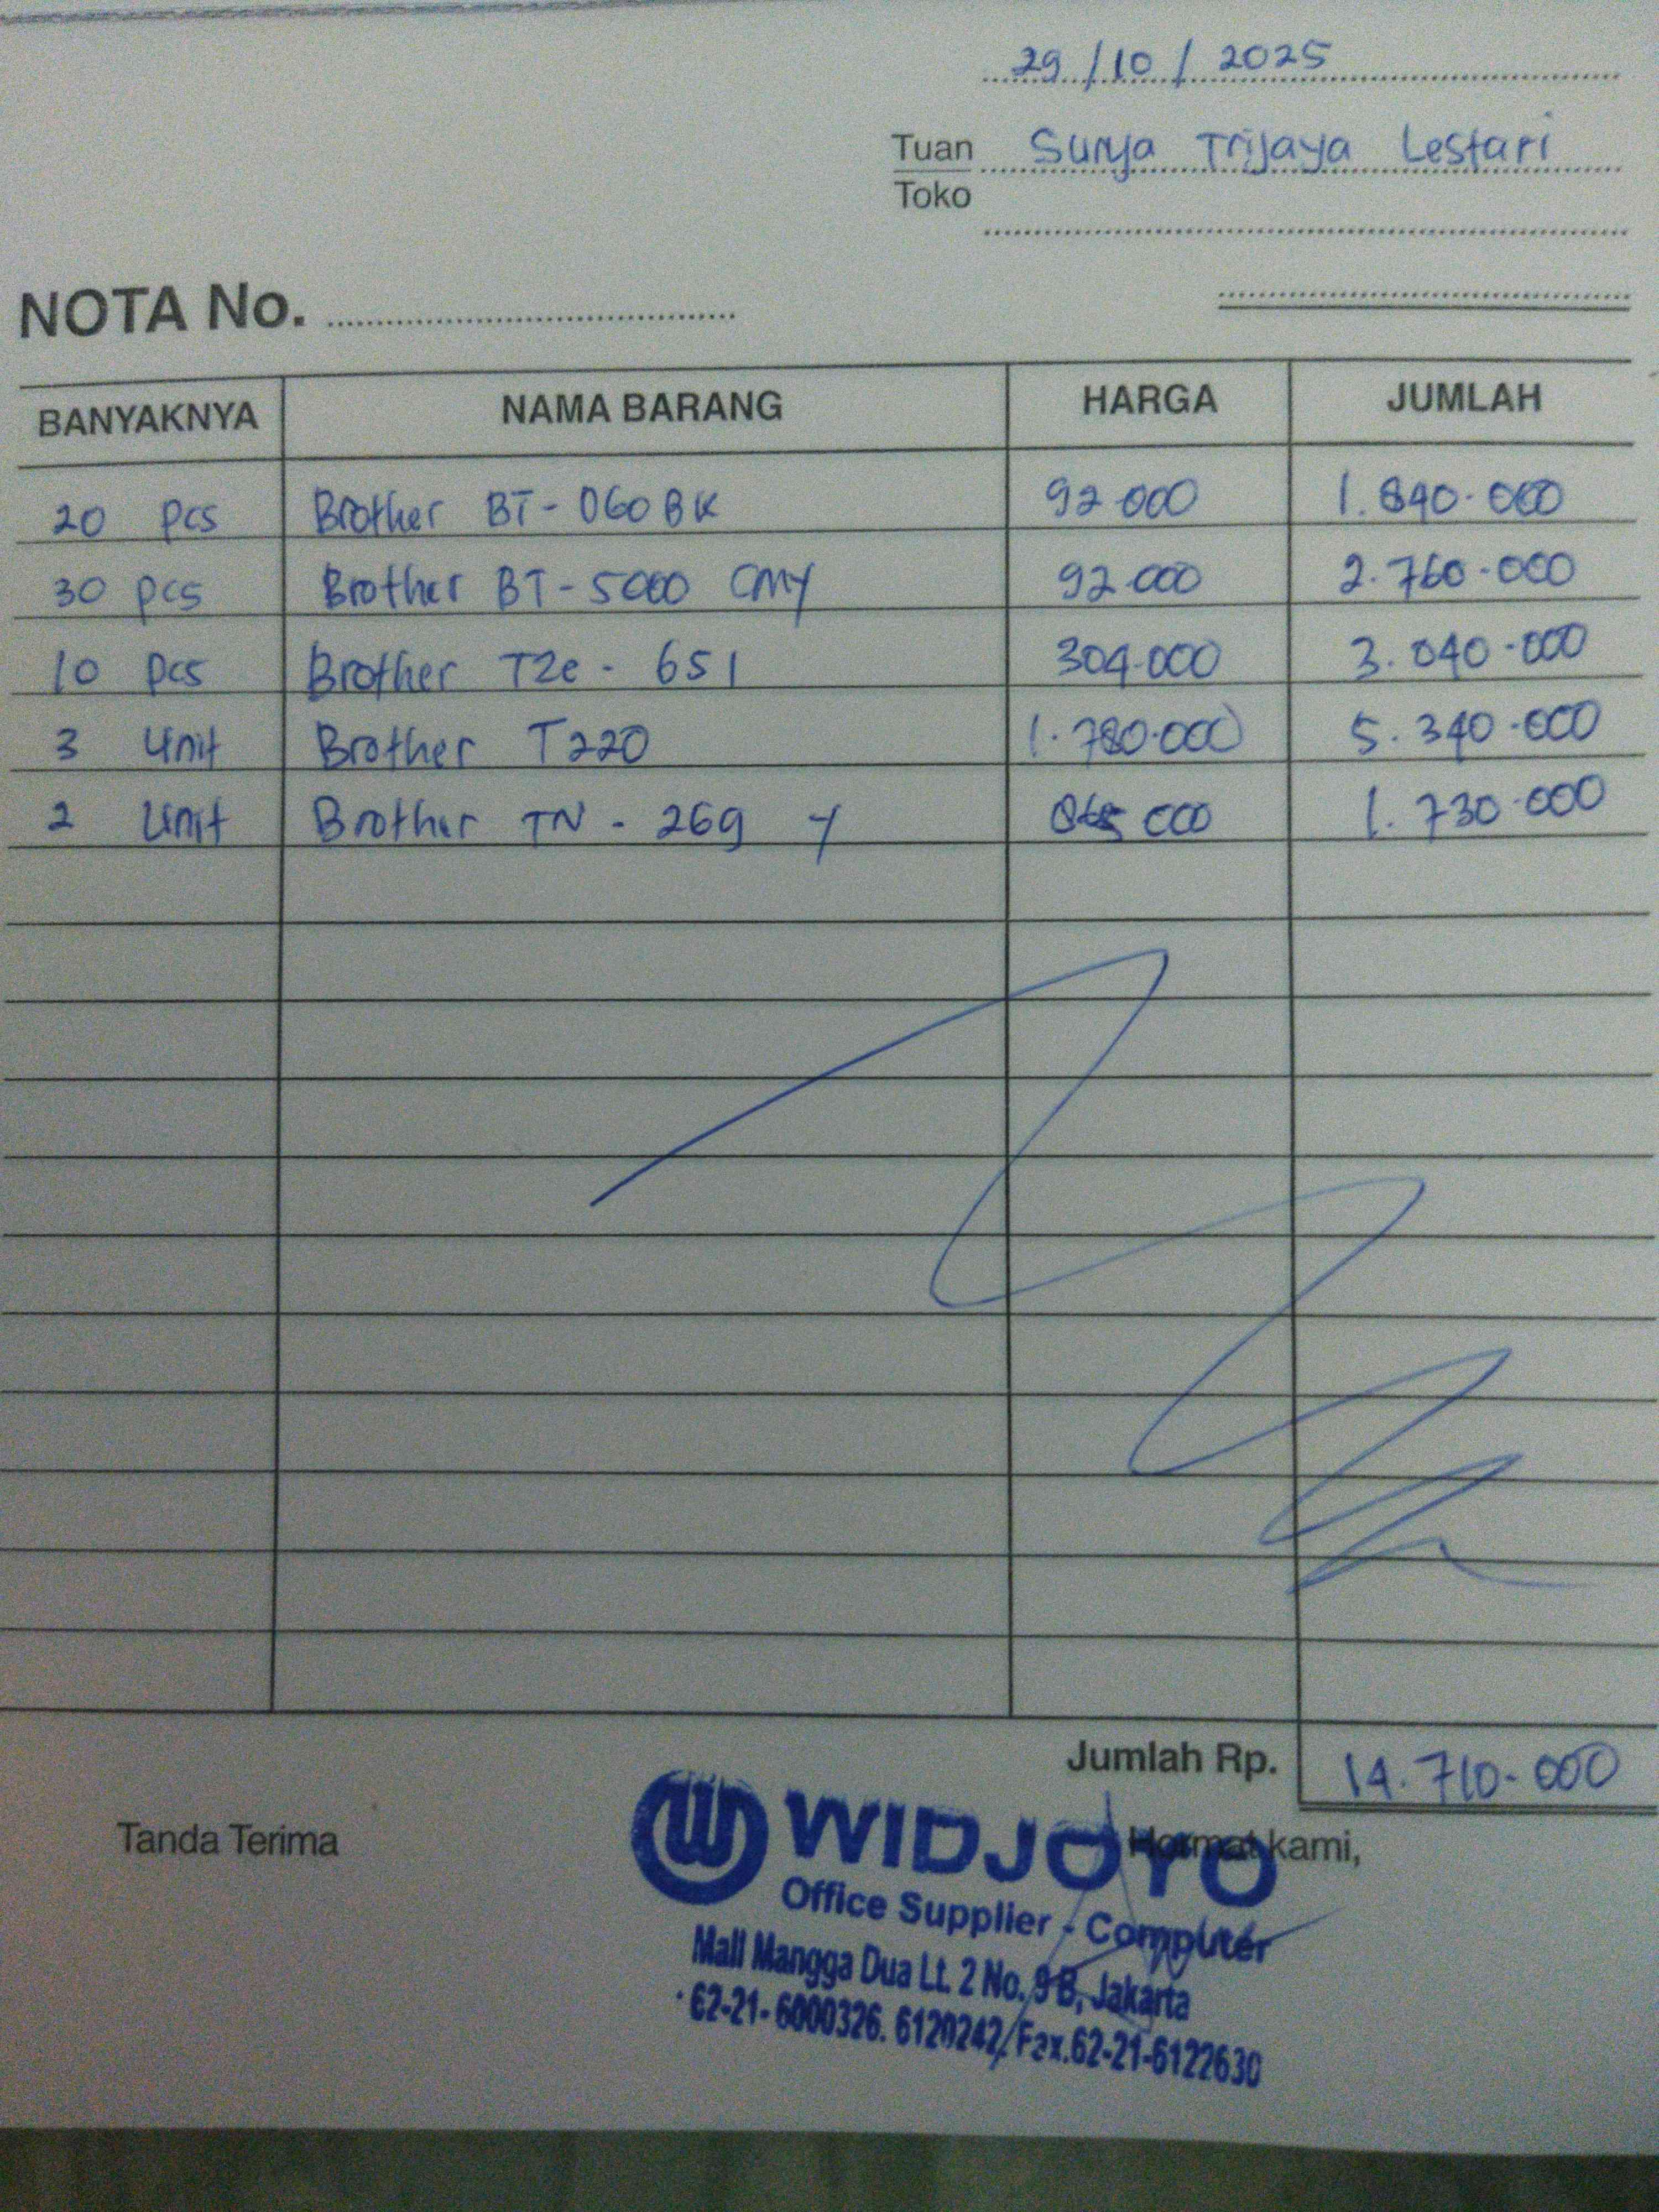 29/10/2025
Tuan Surya Trijaya Lestari
Toko
NOTA No.
BANYAKNYA NAMA BARANG HARGA JUMLAH
20 pcs Brother BT-D60BK 92.000 1.840.000
30 pcs Brother BT-5000 CMY 92.000 2.760.000
10 pcs Brother TZe-651 304.000 3.040.000
3 Unit Brother T220 1.780.000 5.340.000
2 Unit Brother TN-269 Y 865.000 1.730.000
Jumlah Rp. 14.710.000
Tanda Terima
Hormat kami,
WIDJOYO
Office Supplier - Computer
Mall Mangga Dua Lt. 2 No. 9 B, Jakarta
62-21-6000326. 6120242/Fax.62-21-6122630